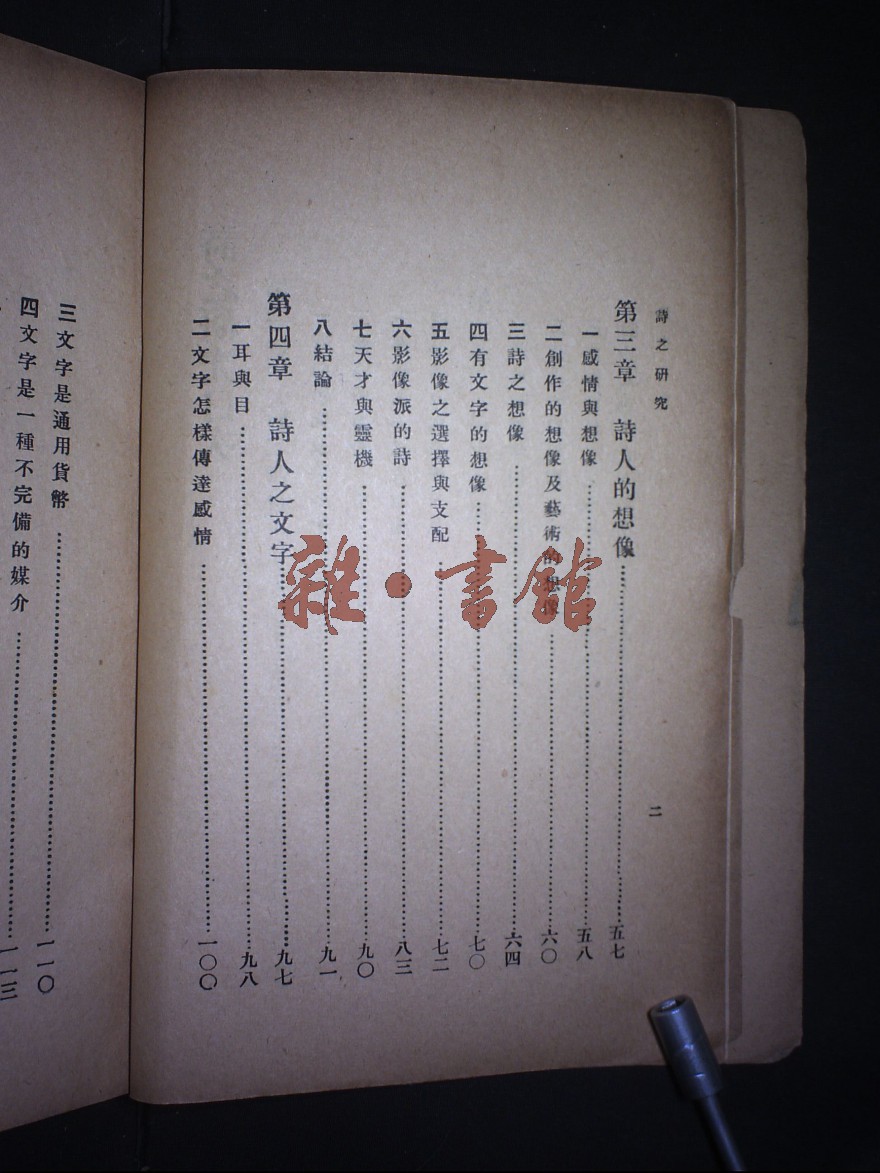 詩之研究
二
第三章 詩人的想像……五七
一 感情與想像……五八
二 創作的想像及藝術的想像……六〇
三 詩之想像……六四
四 有文字的想像……七〇
五 影像之選擇與支配……七二
六 影像派的詩……八三
七 天才與靈機……九〇
八 結論……九一
第四章 詩人之文字……九七
一 耳與目……九八
二 文字怎樣傳達感情……一〇〇
三 文字是通用貨幣……一一〇
四 文字是一種不完備的媒介……一一三
雜·書館